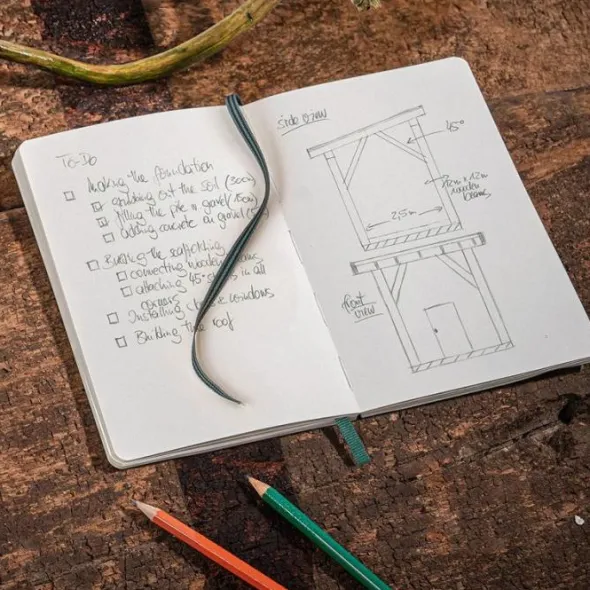 To-Do
Making the foundation
grubbing out the soil (30cm)
filling the pile in gravel (15cm)
Adding concrete on gravel
Building the scaffolding
connecting wooden beams
attaching 45° in all
corners
Installing & windows
Building the roof
side view
45°
wooden
beams
2,5m
front
view